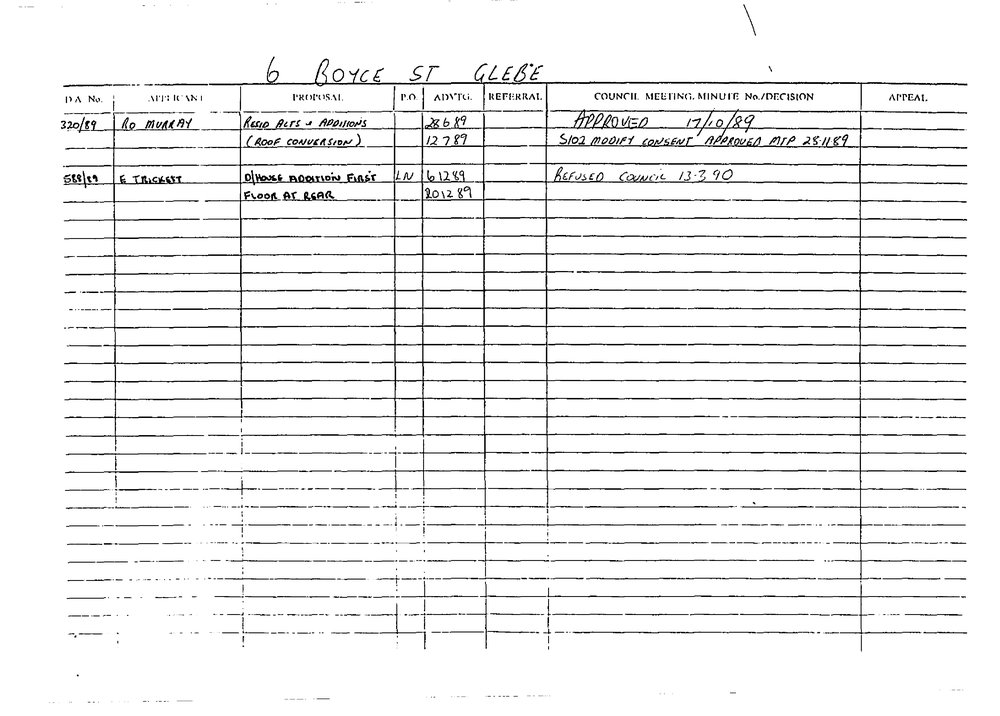 6 BOYCE ST GLEBE
D.A. No. APPLICANT PROPOSAL P.O. ADVTG. REFERRAL COUNCIL MEETING, MINUTE No./DECISION APPEAL
320/89 RO MURRAY RESID ALTS & ADDITIONS 28 6 89 APPROVED 17/10/89
(ROOF CONVERSION) 12 7 89 S102 MODIFY CONSENT APPROVED MTP 28·11 89
588/89 E TRICKETT D/HOUSE ADDITION FIRST LN 6 12 89 REFUSED COUNCIL 13·3 90
FLOOR AT REAR 20 12 89